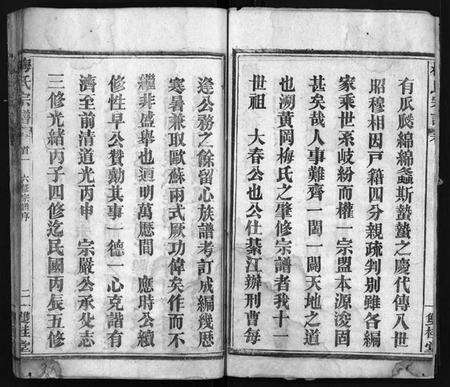 有瓜瓞綿綿螽斯蟄蟄之慶代傳八世
昭穆相因戸籍四分親疏判別雖各編
家乘世系岐紛而權一宗盟本源浚固
甚矣哉人事難齊一闔一闢天地之道
也溯黃岡梅氏之肇修宗譜者我十一
世祖 大春公也公仕綦江辦刑曹每
逢公務之餘留心族譜考訂成編幾歷
寒暑兼取歐蘇兩式厥功偉矣作而不
繼非盛舉也迺明萬厯間 應時公續
修性早公贊動其事一德一心克諧有
濟至前清道光丙申 宗嚴公承父志
三修光緒丙子四修迄民國丙辰五修
梅氏宗譜
首一
六修宗譜序
二
雙桂堂